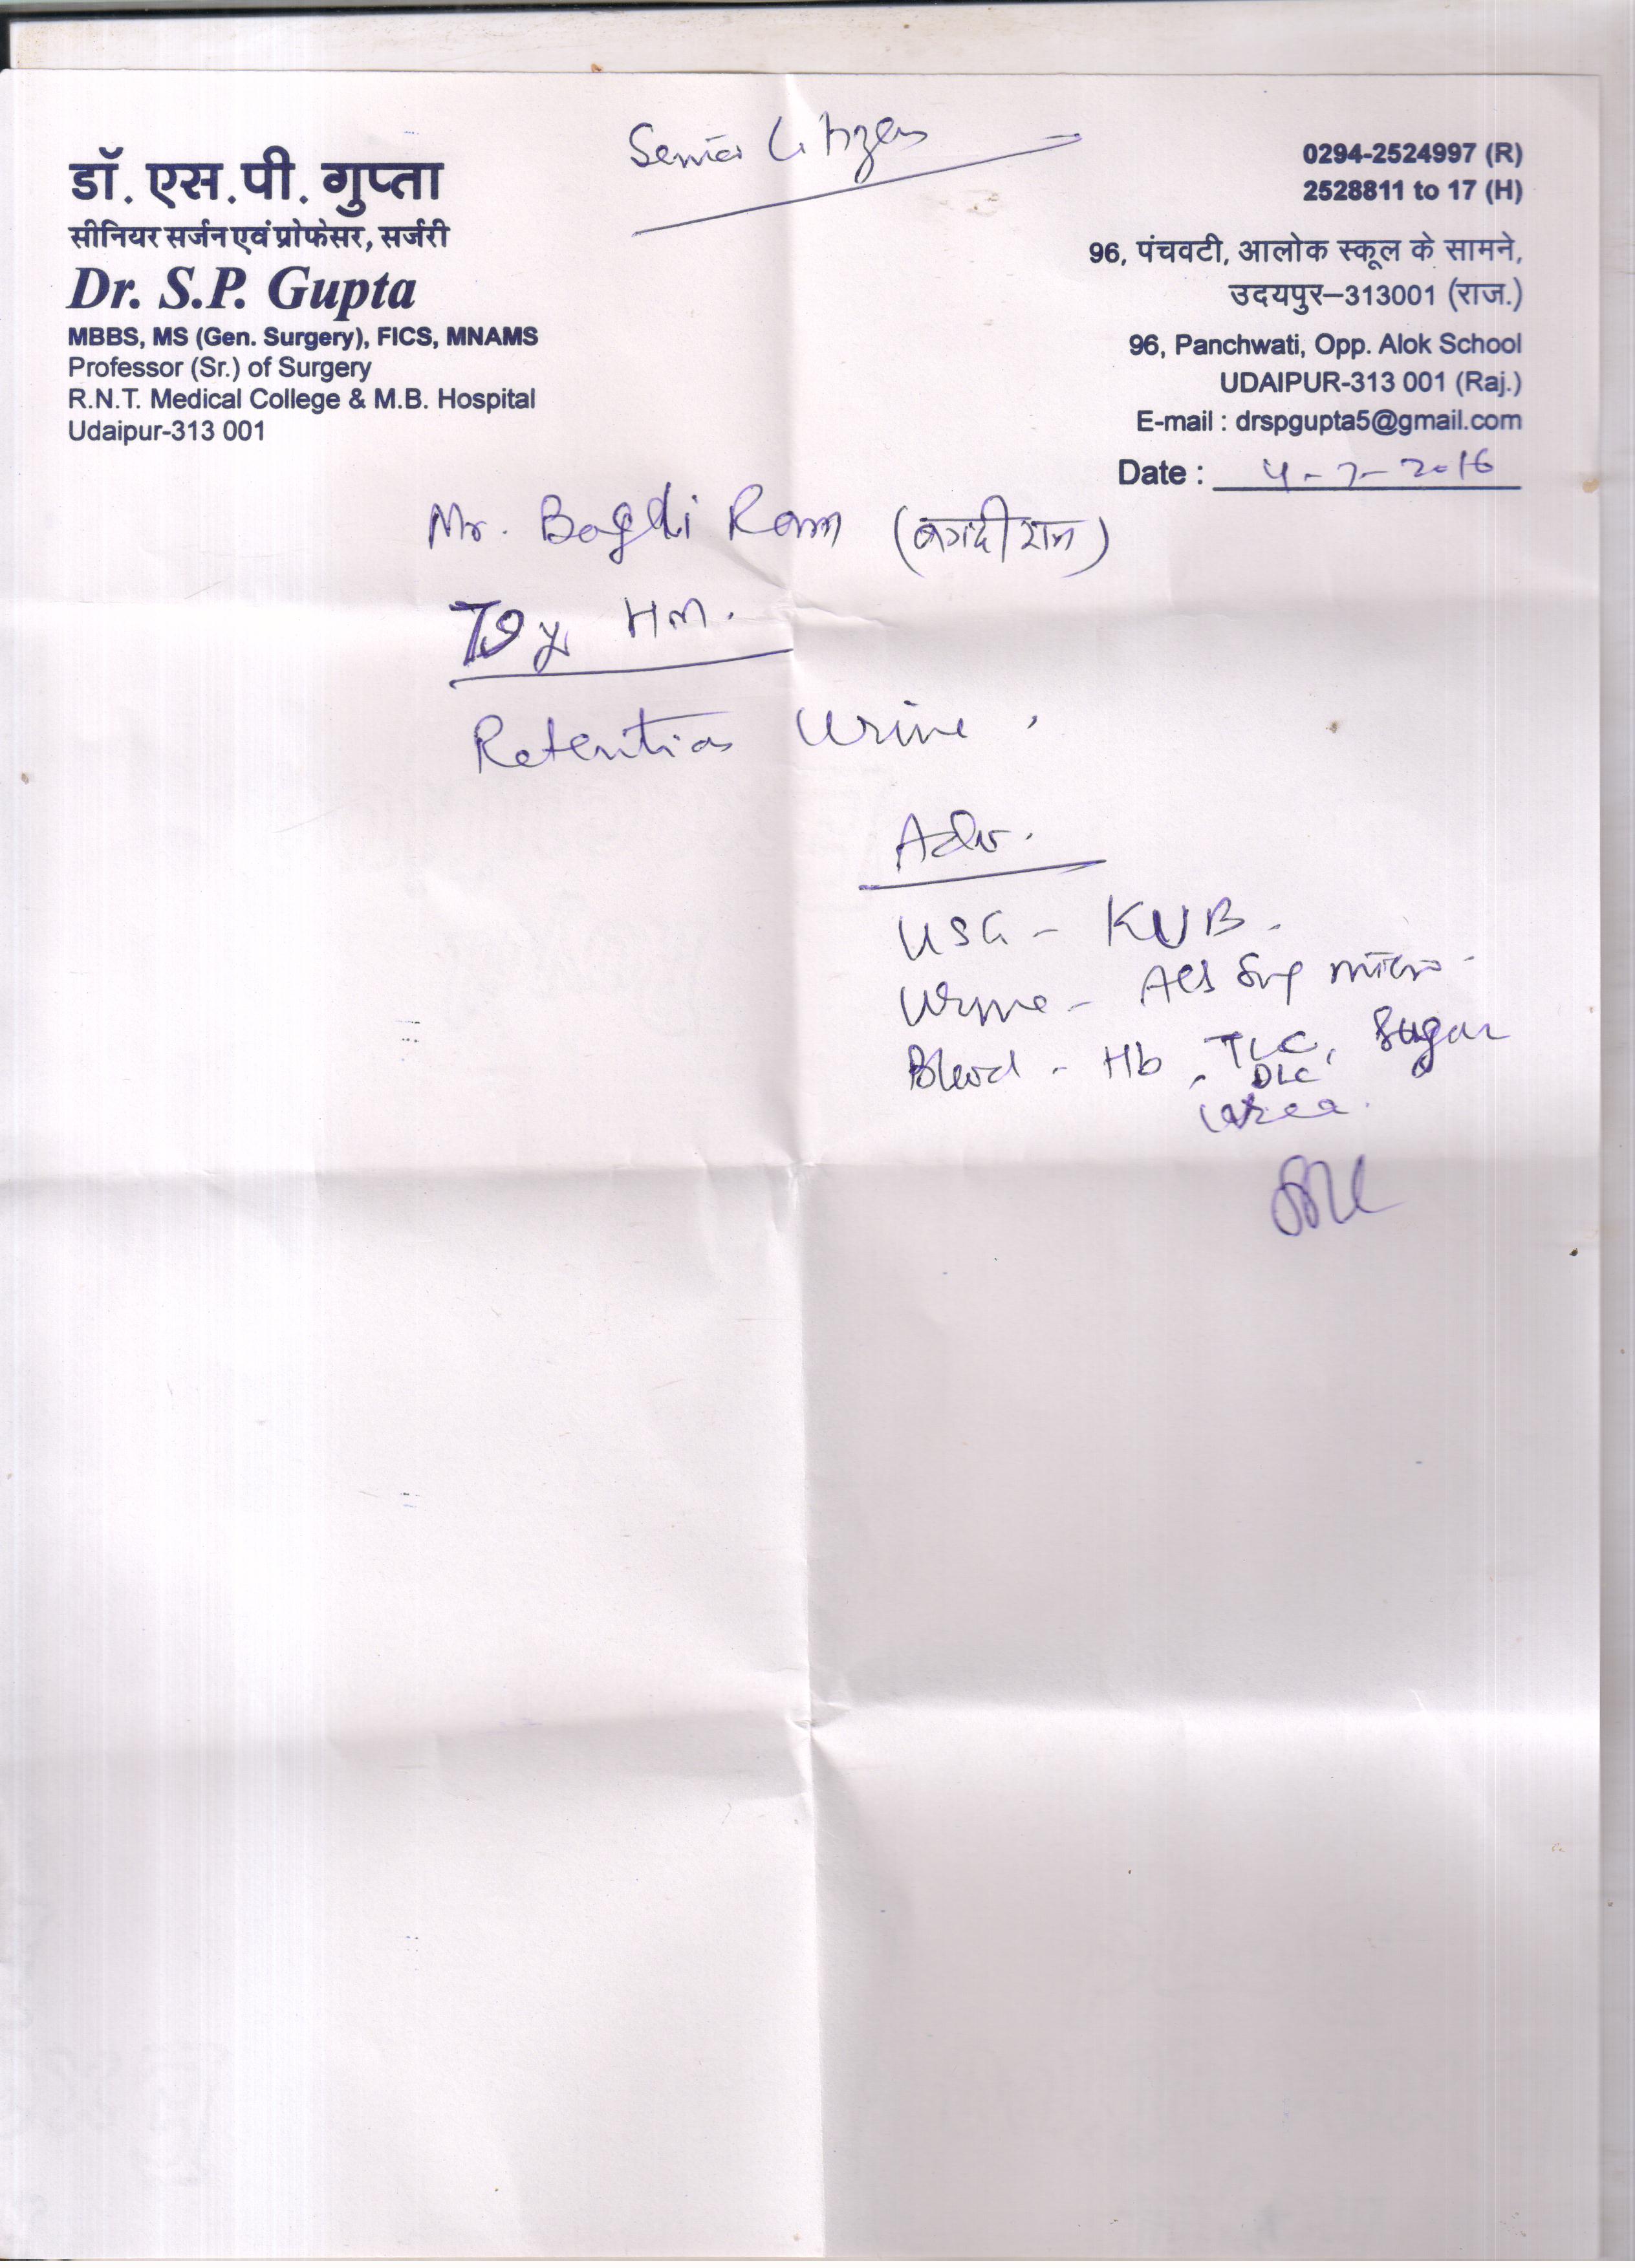 Senior Citizen
डॉ. एस.पी. गुप्ता
सीनियर सर्जन एवं प्रोफेसर, सर्जरी
Dr. S.P. Gupta
MBBS, MS (Gen. Surgery), FICS, MNAMS
Professor (Sr.) of Surgery
R.N.T. Medical College & M.B. Hospital
Udaipur-313 001
0294-2524997 (R)
2528811 to 17 (H)
96, पंचवटी, आलोक स्कूल के सामने,
उदयपुर–313001 (राज.)
96, Panchwati, Opp. Alok School
UDAIPUR-313 001 (Raj.)
E-mail : drspgupta5@gmail.com
Date : 4-7-2016
Mr. Bagdi Ram (बगदीराम)
79 yr HM.
Retention Urine.
Adv.
USG - KUB.
Urine - micro.
Blood - Hb, TLC, Sugar
DLC
Urea.